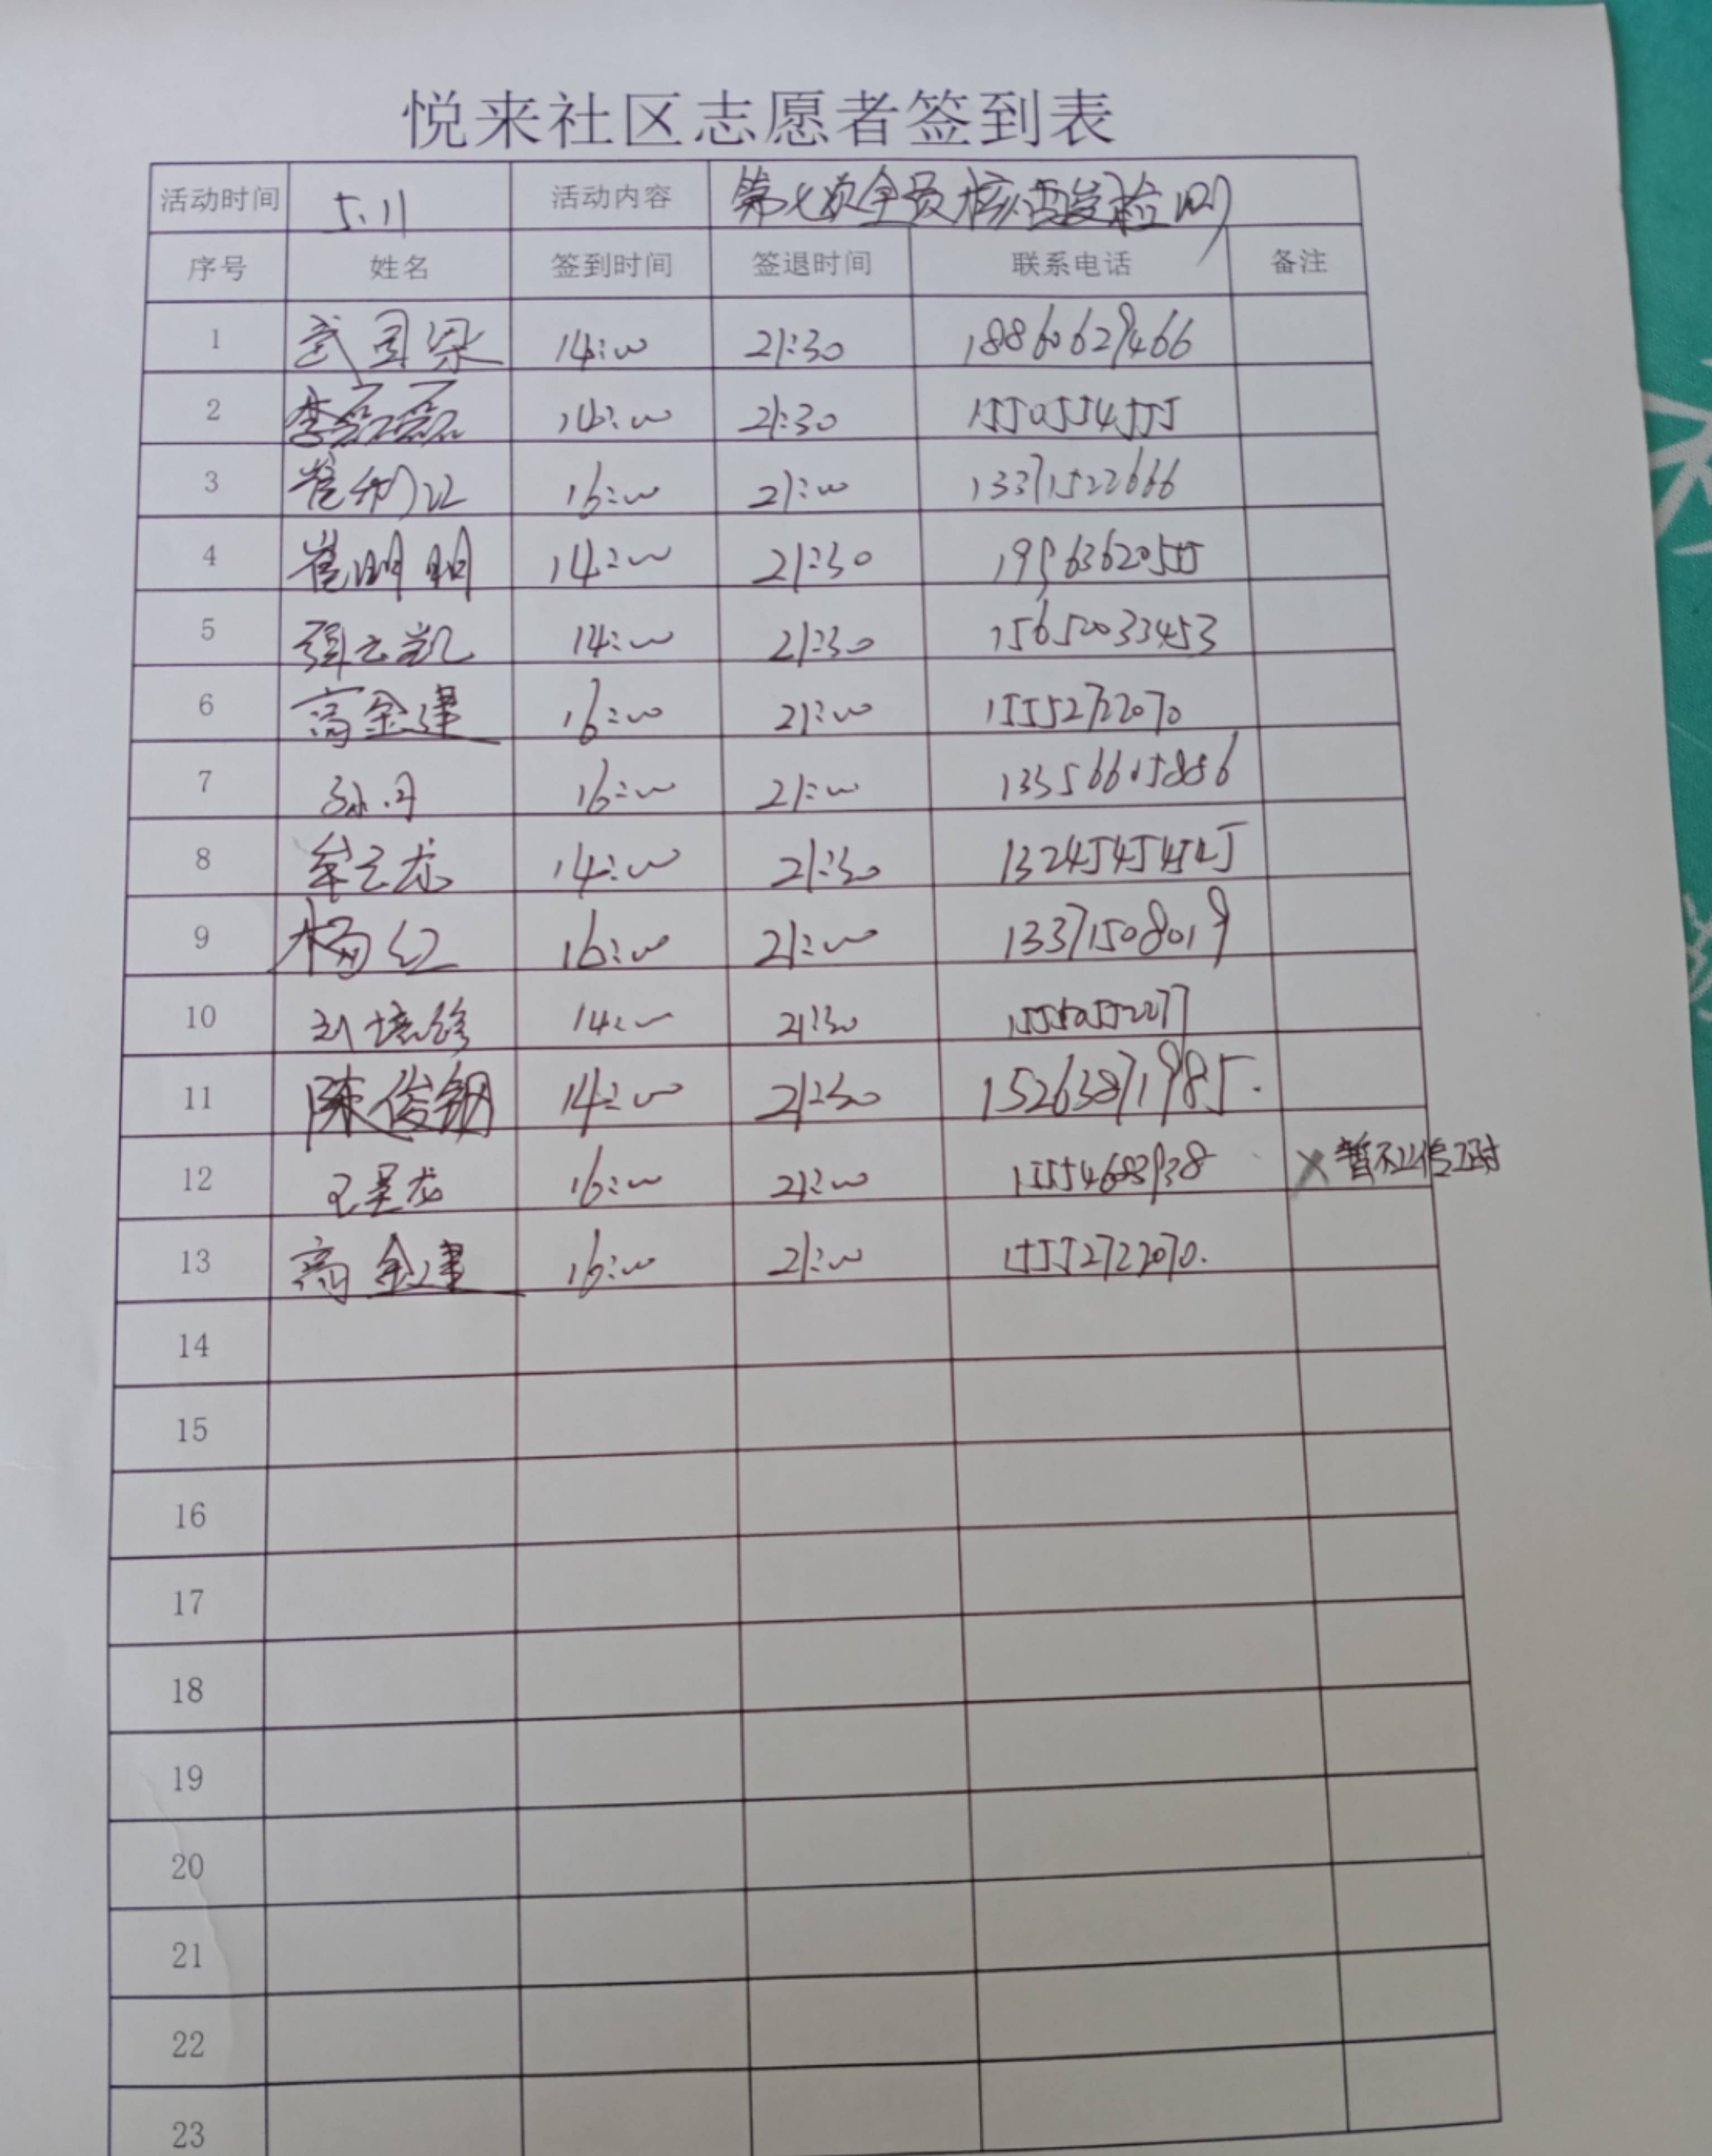 悦来社区志愿者签到表
活动时间 5.11 活动内容 第七次全员核酸检测
序号 姓名 签到时间 签退时间 联系电话 备注
1 武国梁 14:00 21:30 18860629466
2 李磊磊 14:00 21:30 15505545555
3 崔利江 16:00 21:00 13371522666
4 崔明明 14:00 21:30 19563620555
5 张云凯 14:00 21:30 15650033453
6 高金建 16:00 21:00 15552722070
7 孙丹 16:00 21:00 13356605886
8 牟云龙 14:00 21:30 13245454545
9 杨红 16:00 21:00 13371508019
10 刘培 14:00 21:30
11 陈俊钢 14:00 21:30 15263871985.
12 王星龙 16:00 21:00 15554683938 × 暂不上信工时
13 高金建 16:00 21:00 15552722070.
14
15
16
17
18
19
20
21
22
23